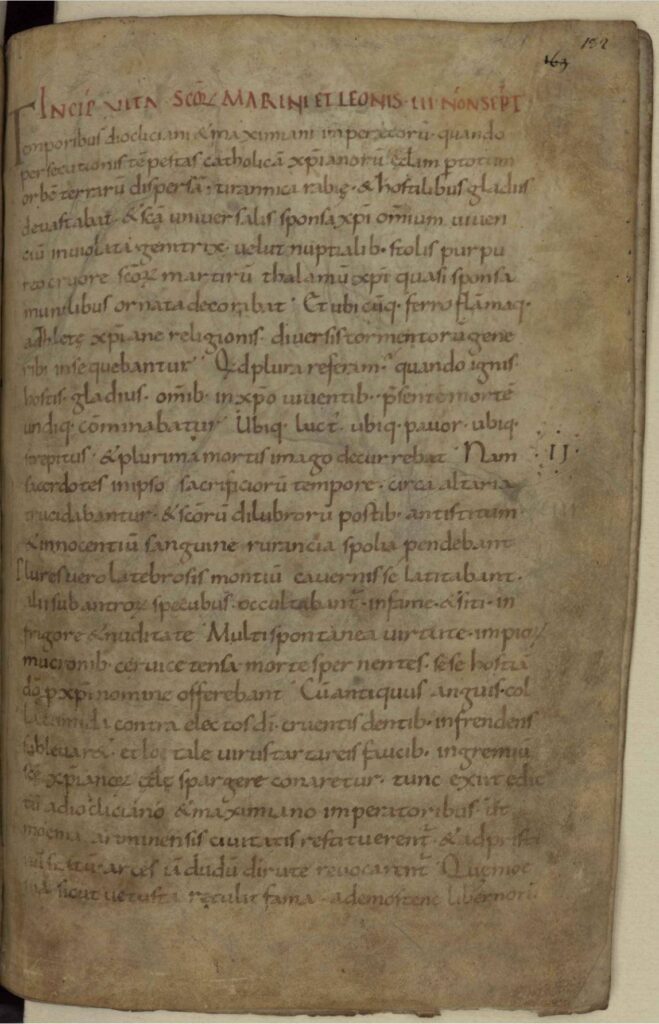 132
163
INCIP̄ VITA SCŌR MARINI ET LEONIS III NON SEPT
Temporibus diocliciani & maximiani imperatorū. quando
persecutionis tēpestas catholicā xp̄ianorū ędam p totum
orbē terrarū dispersā; tirannica rabię. & hostilibus gladiis
devastabat. & scā universalis sponsa xp̄i om̄ium viven
ciū inviolata genitrix. velut nuptialib. stolis purpu
reo cruore scōr martirū thalamū xp̄i quasi sponsa
munilibus ornata decorabat Et ubicūq. ferro flāmaq.
adhletę xp̄iane religionis. diversis tormentorū gene
rib. insequebantur Qd plura referam. quando ignis.
hostis. gladius. om̄ib. in xp̄o viventib. p̄sente morte
undiq. cōminabatur Ubiq. luct. ubiq. pavor. ubiq.
strepitus. & plurima mortis imago decurrebat Nam
II
sacerdotes in ipso sacrificiorū tempore. circa altaria
trucidabantur. & scōrū dilubrorū postib. antistitum
& innocentiū sanguine spolia pendebant
Plures vero latebrosis montiū cavernis se latitabant.
alii sub antror specubus occultabant. in fame. & siti. in
frigore & nuditate Multi spontanea virtute. impior
mucronib. cervice tensa morte spernentes. sese hostiā
dō p xp̄i nomine offerebant Cū antiquus anguis. col
la timida contra electos dī. cruentis dentib. infrendens
sublevar&. et loetale virus tartareis faucib. in gremiū
scę xp̄ianor spargere conaretur. tunc exiit edic
tū a diocliciano & maximiano imperatoribus. ut
moenia arominensis civitatis restituerent. & ad pristi
nū statū. arces iā dudū dirute revocarent Quemoc
sicut vetusta retulit fama. a demostene libernorū